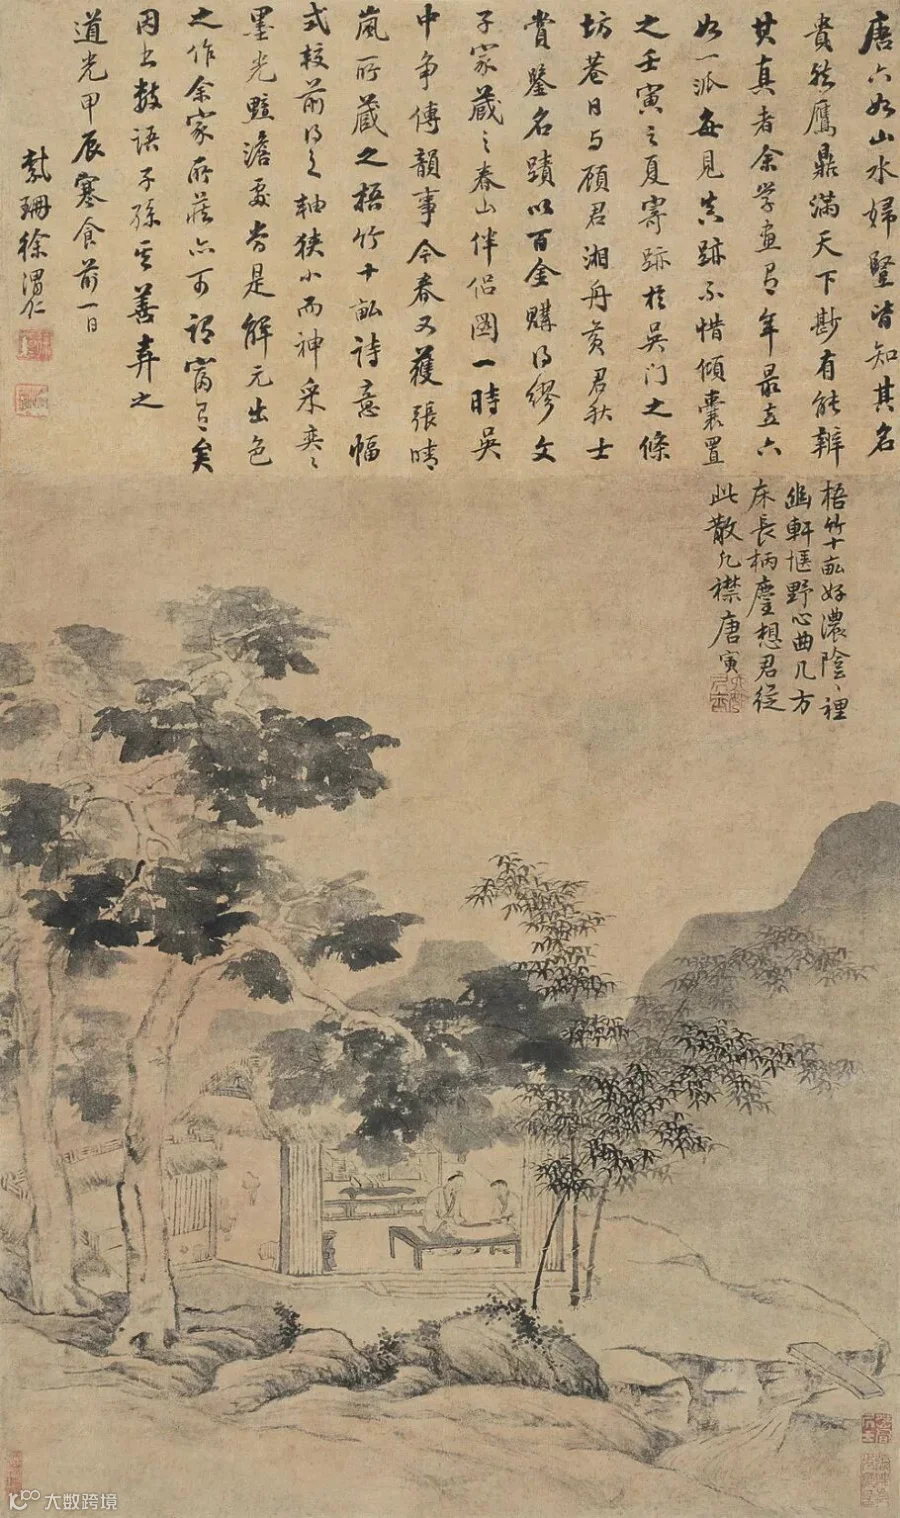 唐六如山水婦豎皆知其名
貴然鷹鼎滿天下尠有能辨
其真者余学畫有年最六
如一派每見真跡不惜傾囊置
之壬寅之夏寄跡於吳门之條
坊巷日与顧君湘舟黃君秋士
賞鑒名蹟以百金購得繆文
子家藏之春山伴侣圖一時吳
中争傳韻事今春又獲張晴
嵐所藏之梧竹十畝詩意幅
式校前得之軸狭小而神采奕〻
墨光黯澹處尚是解元出色
之作余家所藏亦可謂富有矣
因書數語子孫其善弆之
道光甲辰寒食前一日
紫珊徐渭仁
梧竹十畝好濃陰〻裡
幽軒愜野心曲几方
床長柄麈想君從
此散凡襟唐寅
大数跨境